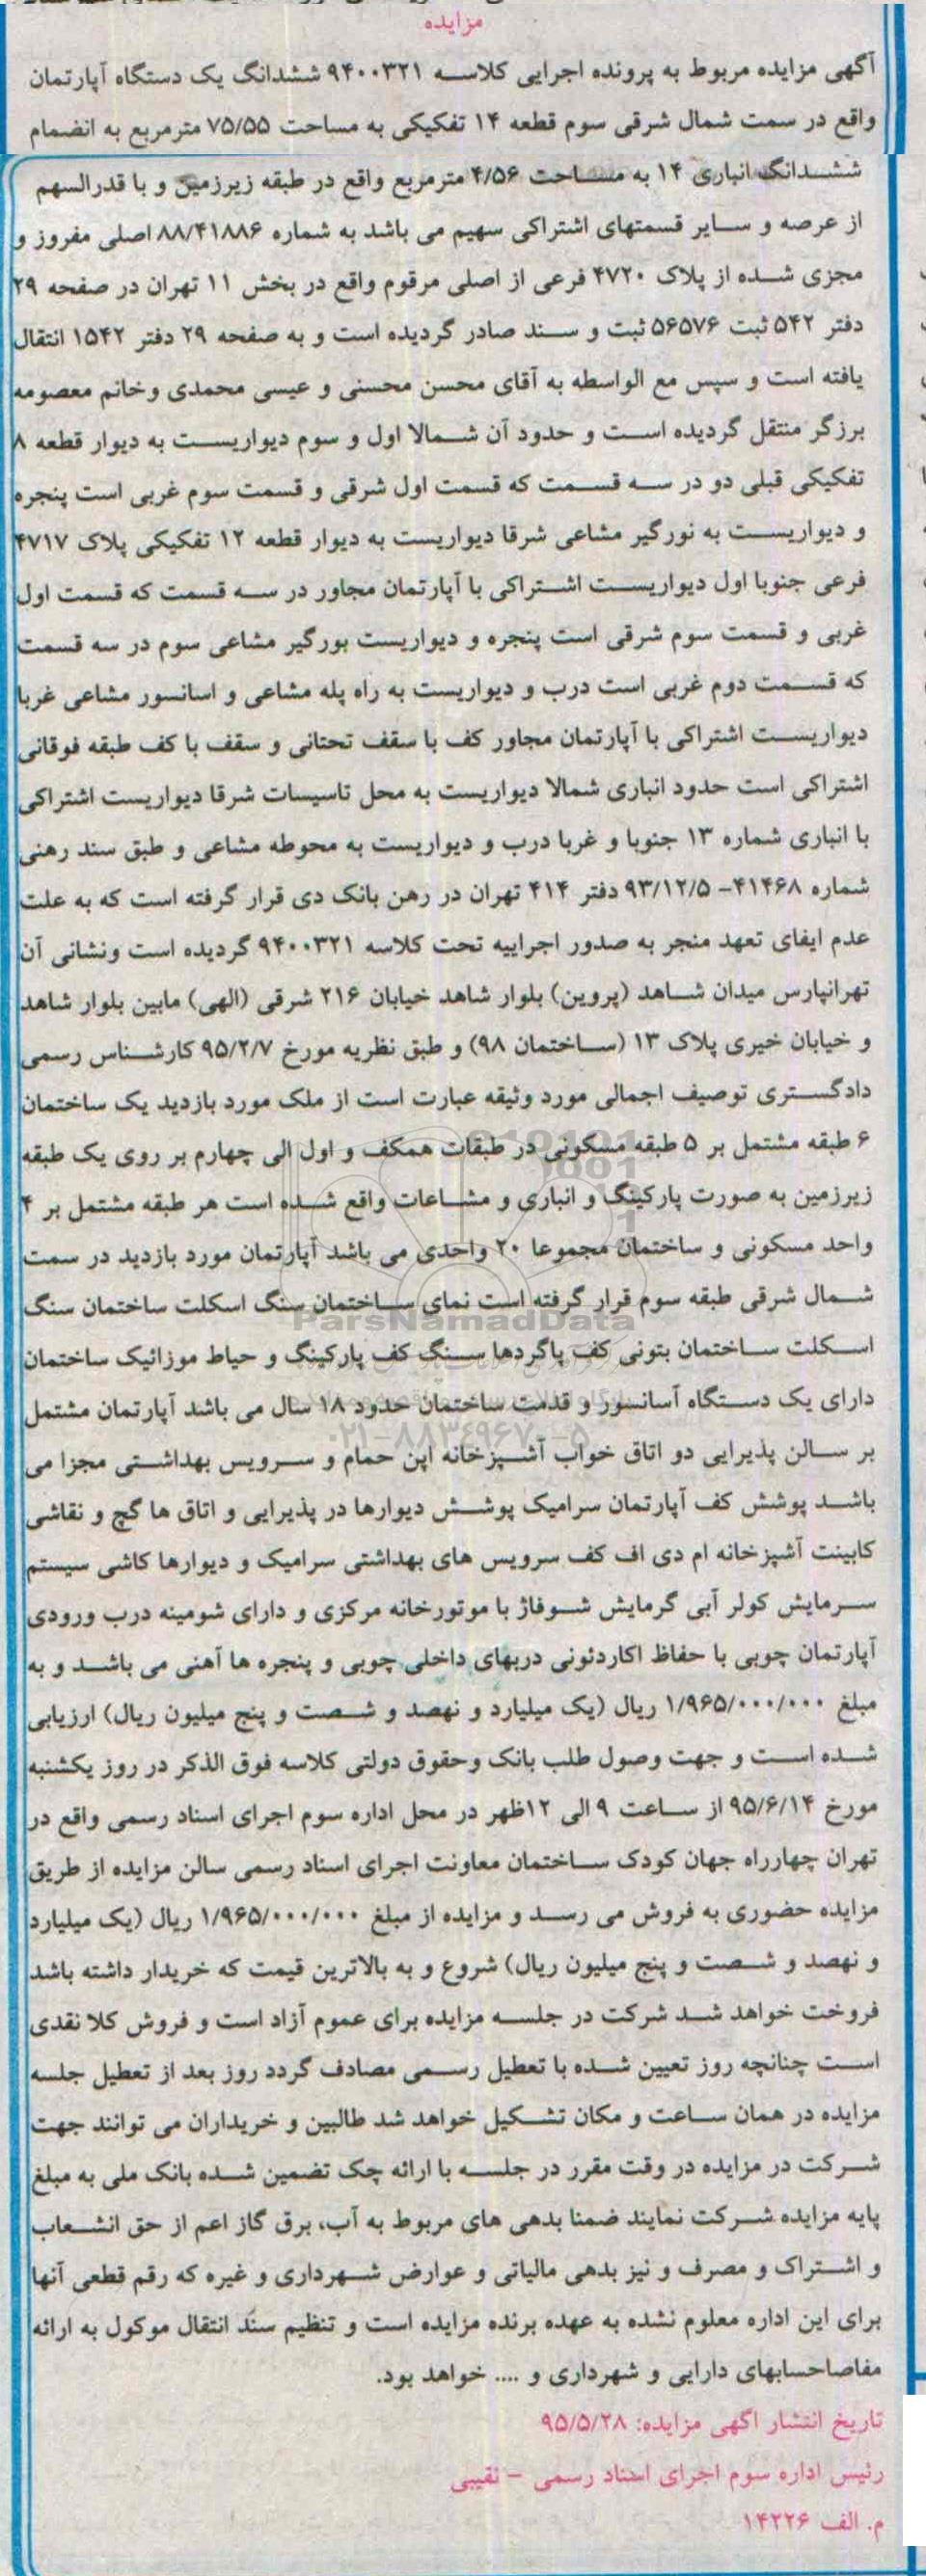 مزایده
آگهی مزایده مربوط به پرونده اجرایی کلاسه ۹۴۰۰۳۲۱ ششدانگ یک دستگاه آپارتمان
واقع در سمت شمال شرقی سوم قطعه ۱۴ تفکیکی به مساحت ۷۵/۵۵ مترمربع به انضمام
ششدانگ انباری ۱۴ به مساحت ۴/۵۶ مترمربع واقع در طبقه زیرزمین و با قدرالسهم
از عرصه و سایر قسمتهای اشتراکی سهیم می باشد به شماره ۸۸/۴۱۸۸۶ اصلی مفروز و
مجزی شده از پلاک ۴۷۲۰ فرعی از اصلی مرقوم واقع در بخش ۱۱ تهران در صفحه ۲۹
دفتر ۵۴۲ ثبت ۵۶۵۷۶ ثبت و سند صادر گردیده است و به صفحه ۲۹ دفتر ۱۵۴۲ انتقال
یافته است و سپس مع الواسطه به آقای محسن محسنی و عیسی محمدی وخانم معصومه
برزگر منتقل گردیده است و حدود آن شمالا اول و سوم دیواریست به دیوار قطعه ۸
تفکیکی قبلی دو در سه قسمت که قسمت اول شرقی و قسمت سوم غربی است پنجره
و دیواریست به نورگیر مشاعی شرقا دیواریست به دیوار قطعه ۱۲ تفکیکی پلاک ۴۷۱۷
فرعی جنوبا اول دیواریست اشتراکی با آپارتمان مجاور در سه قسمت که قسمت اول
غربی و قسمت سوم شرقی است پنجره و دیواریست بورگیر مشاعی سوم در سه قسمت
که قسمت دوم غربی است درب و دیواریست به راه پله مشاعی و اسانسور مشاعی غربا
دیواریست اشتراکی با آپارتمان مجاور کف با سقف تحتانی و سقف با کف طبقه فوقانی
اشتراکی است حدود انباری شمالا دیواریست به محل تاسیسات شرقا دیواریست اشتراکی
با انباری شماره ۱۳ جنوبا و غربا درب و دیواریست به محوطه مشاعی و طبق سند رهنی
شماره ۴۱۴۶۸- ۹۳/۱۲/۵ دفتر ۴۱۴ تهران در رهن بانک دی قرار گرفته است که به علت
عدم ایفای تعهد منجر به صدور اجراییه تحت کلاسه ۹۴۰۰۳۲۱ گردیده است ونشانی آن
تهرانپارس میدان شاهد (پروین) بلوار شاهد خیابان ۲۱۶ شرقی (الهی) مابین بلوار شاهد
و خیابان خیری پلاک ۱۳ (ساختمان ۹۸) و طبق نظریه مورخ ۹۵/۲/۷ کارشناس رسمی
دادگستری توصیف اجمالی مورد وثیقه عبارت است از ملک مورد بازدید یک ساختمان
۶ طبقه مشتمل بر ۵ طبقه مسکونی در طبقات همکف و اول الی چهارم بر روی یک طبقه
زیرزمین به صورت پارکینگ و انباری و مشاعات واقع شده است هر طبقه مشتمل بر ۴
واحد مسکونی و ساختمان مجموعا ۲۰ واحدی می باشد آپارتمان مورد بازدید در سمت
شمال شرقی طبقه سوم قرار گرفته است نمای ساختمان سنگ اسکلت ساختمان سنگ
ParsNamadData
اسکلت ساختمان بتونی کف پاگردها سنگ کف پارکینگ و حیاط موزائیک ساختمان
دارای یک دستگاه آسانسور و قدمت ساختمان حدود ۱۸ سال می باشد آپارتمان مشتمل
۰۲۱-۸۸۳۴۹۶۷۰-۵
بر سالن پذیرایی دو اتاق خواب آشپزخانه اپن حمام و سرویس بهداشتی مجزا می
باشد پوشش کف آپارتمان سرامیک پوشش دیوارها در پذیرایی و اتاق ها گچ و نقاشی
کابینت آشپزخانه ام دی اف کف سرویس های بهداشتی سرامیک و دیوارها کاشی سیستم
سرمایش کولر آبی گرمایش شوفاژ با موتورخانه مرکزی و دارای شومینه درب ورودی
آپارتمان چوبی با حفاظ اکاردئونی دربهای داخلی چوبی و پنجره ها آهنی می باشد و به
مبلغ ۱/۹۶۵/۰۰۰/۰۰۰ ریال (یک میلیارد و نهصد و شصت و پنج میلیون ریال) ارزیابی
شده است و جهت وصول طلب بانک وحقوق دولتی کلاسه فوق الذکر در روز یکشنبه
مورخ ۹۵/۶/۱۴ از ساعت ۹ الی ۱۲ظهر در محل اداره سوم اجرای اسناد رسمی واقع در
تهران چهارراه جهان کودک ساختمان معاونت اجرای اسناد رسمی سالن مزایده از طریق
مزایده حضوری به فروش می رسد و مزایده از مبلغ ۱/۹۶۵/۰۰۰/۰۰۰ ریال (یک میلیارد
و نهصد و شصت و پنج میلیون ریال) شروع و به بالاترین قیمت که خریدار داشته باشد
فروخت خواهد شد شرکت در جلسه مزایده برای عموم آزاد است و فروش کلا نقدی
است چنانچه روز تعیین شده با تعطیل رسمی مصادف گردد روز بعد از تعطیل جلسه
مزایده در همان ساعت و مکان تشکیل خواهد شد طالبین و خریداران می توانند جهت
شرکت در مزایده در وقت مقرر در جلسه با ارائه چک تضمین شده بانک ملی به مبلغ
پایه مزایده شرکت نمایند ضمنا بدهی های مربوط به آب، برق گاز اعم از حق انشعاب
و اشتراک و مصرف و نیز بدهی مالیاتی و عوارض شهرداری و غیره که رقم قطعی آنها
برای این اداره معلوم نشده به عهده برنده مزایده است و تنظیم سند انتقال موکول به ارائه
مفاصاحسابهای دارایی و شهرداری و .... خواهد بود.
تاریخ انتشار اگهی مزایده: ۹۵/۵/۲۸
رئیس اداره سوم اجرای اسناد رسمی - نقیبی
م. الف ۱۴۲۲۶